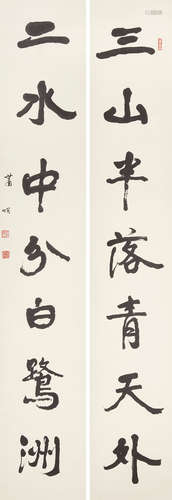 三山半落青天外
二水中分白鷺洲